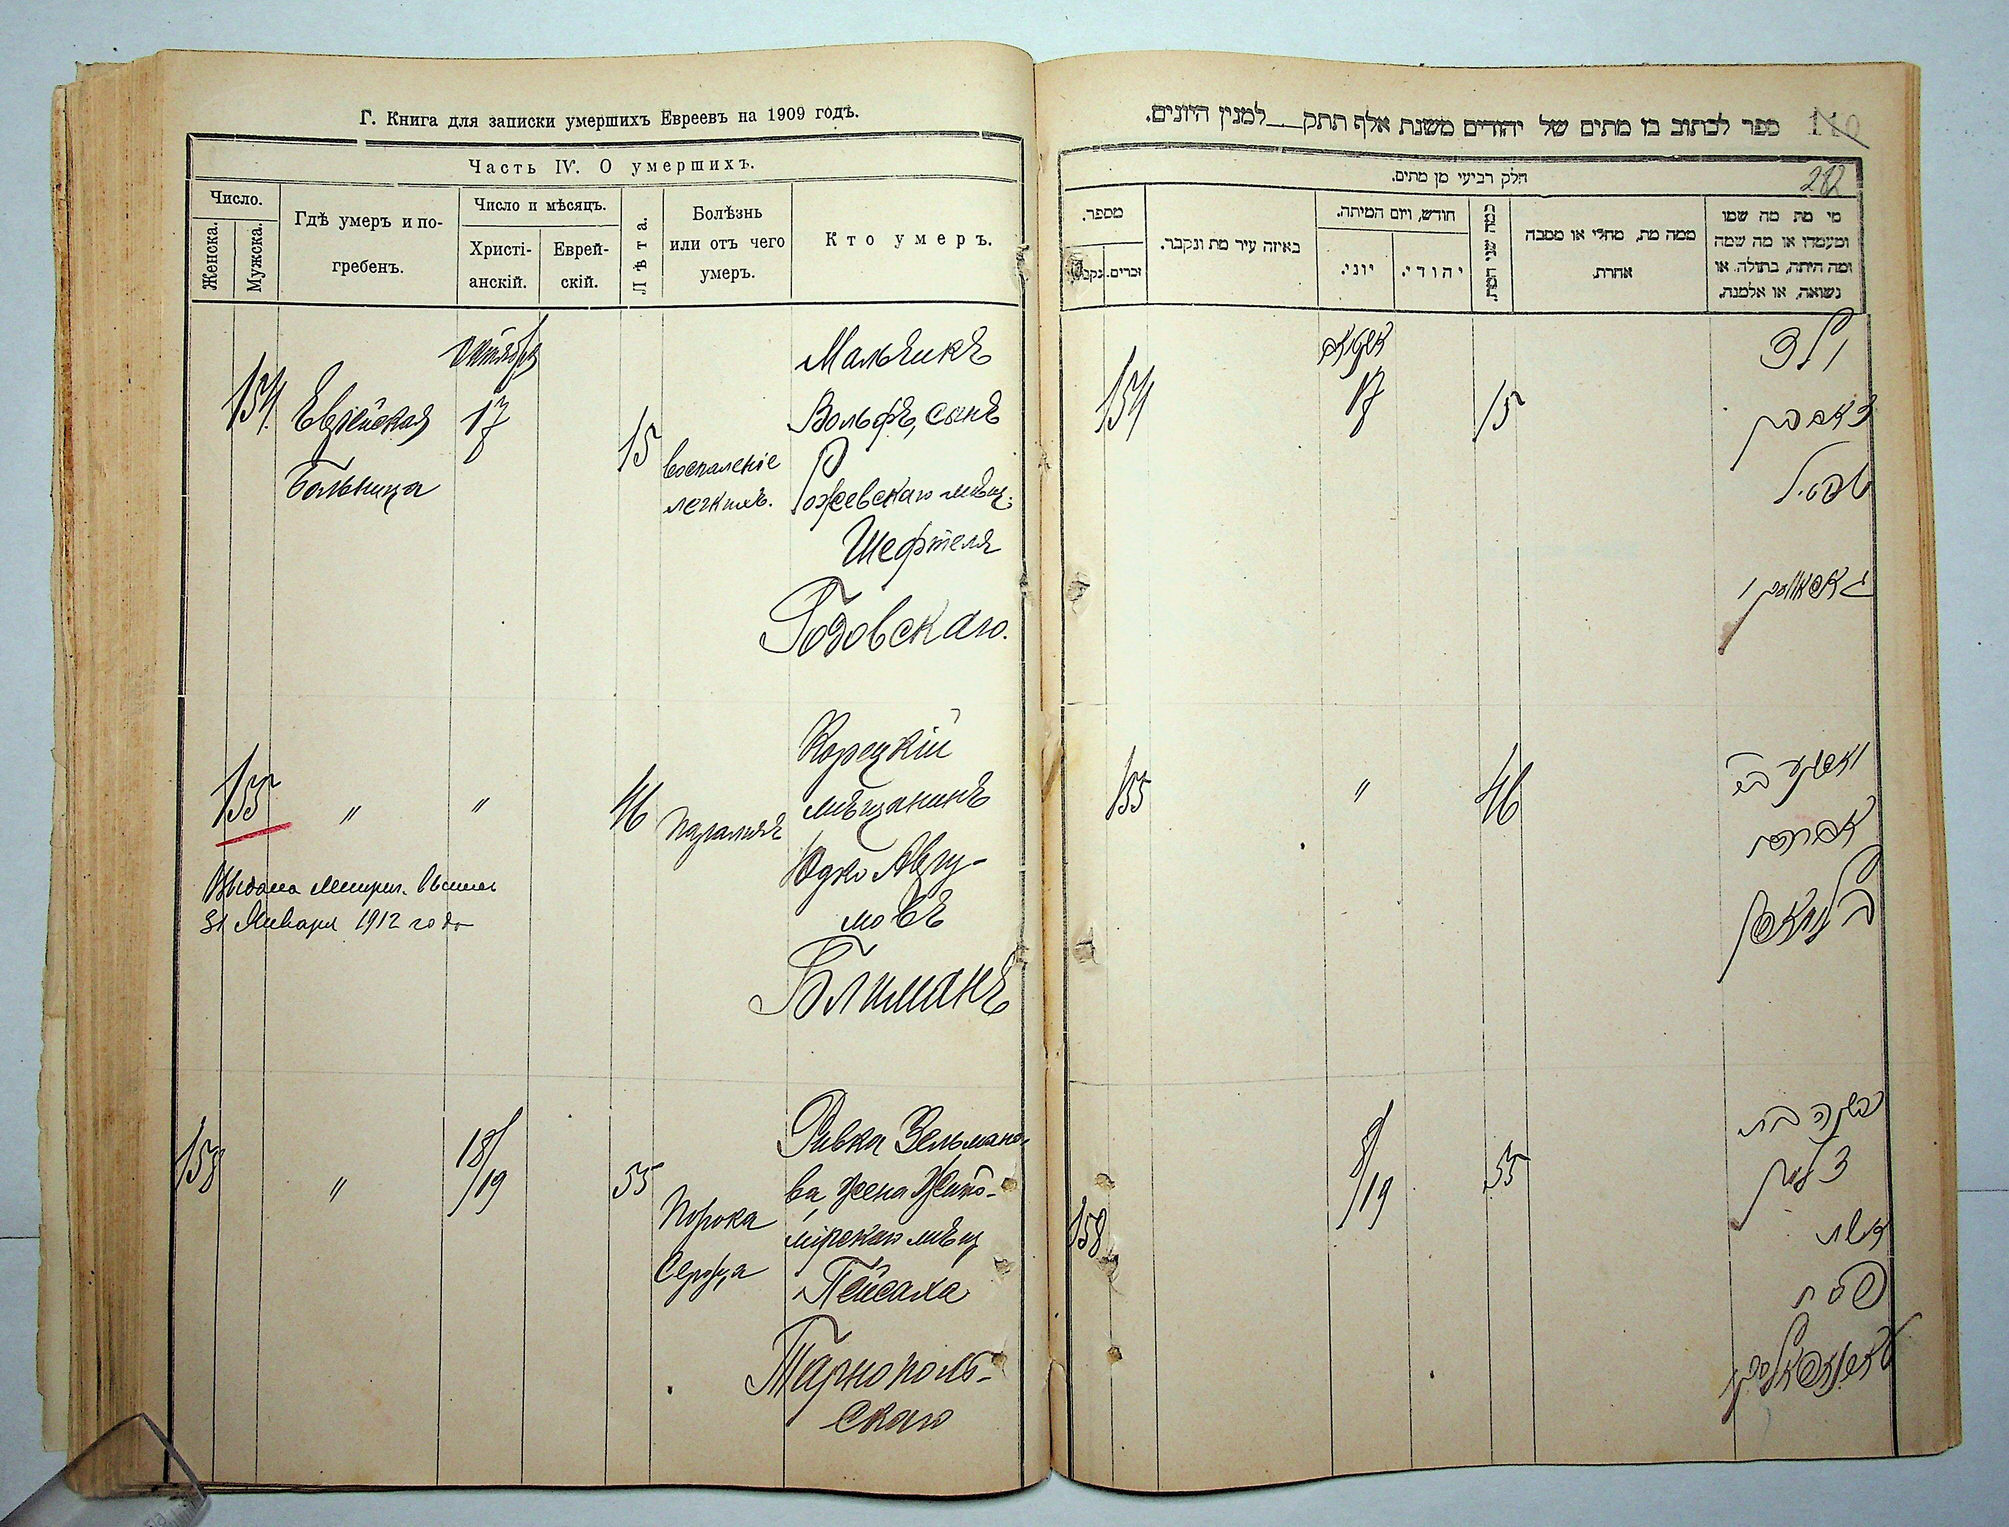 Г. Книга для записки умершихъ Евреевъ на 1909 годъ.
Часть IV. О умершихъ.
Число.
Женска.
Мужска.
Гдѣ умеръ и по-
гребенъ.
Число и мѣсяцъ.
Христі-
анскій.
Еврей-
скій.
Лѣта.
Болѣзнь
или отъ чего
умеръ.
Кто умеръ.
Октября
154
Еврейская
больница
17
15
воспаленіе
легкихъ.
Мальчикъ
Вольфъ, сынъ
Рожевскаго мѣщ.
Шефтеля
Годовскаго.
155
"
"
46
Корецкій
мѣщанинъ
Юдко Авру-
мовъ
Блиманъ
Выдана метрич. выпись
31 Января 1912 года
158
"
18/19
55
Порока
сердца
Ривка Зельмано-
ва, жена Жито-
мірскаго мѣщ
Пейсаха
Тарнополь-
скаго
ספר לכתוב בו מתים של יהודים משנת אלף תתק__למנין היונים.
110
חלק רביעי מן מתים.
212
מספר.
נקבות
זכרים.
באיזה עיר מת ונקבר.
חודש, ויום המיתה.
יוני.
יהודי.
כמה שני המת.
ממה מת, מחלי או מסבה
אחרת.
מי מת מה שמו
ומעמדו או מה שמה
ומה היתה, בתולה, או
נשואה, או אלמנה.
154
17
15
ילד
155
"
46
אברהם
בלימאן
158
18/19
55
רבקה בת
זלמן
אשת
פסח
טארנאפאלסקי